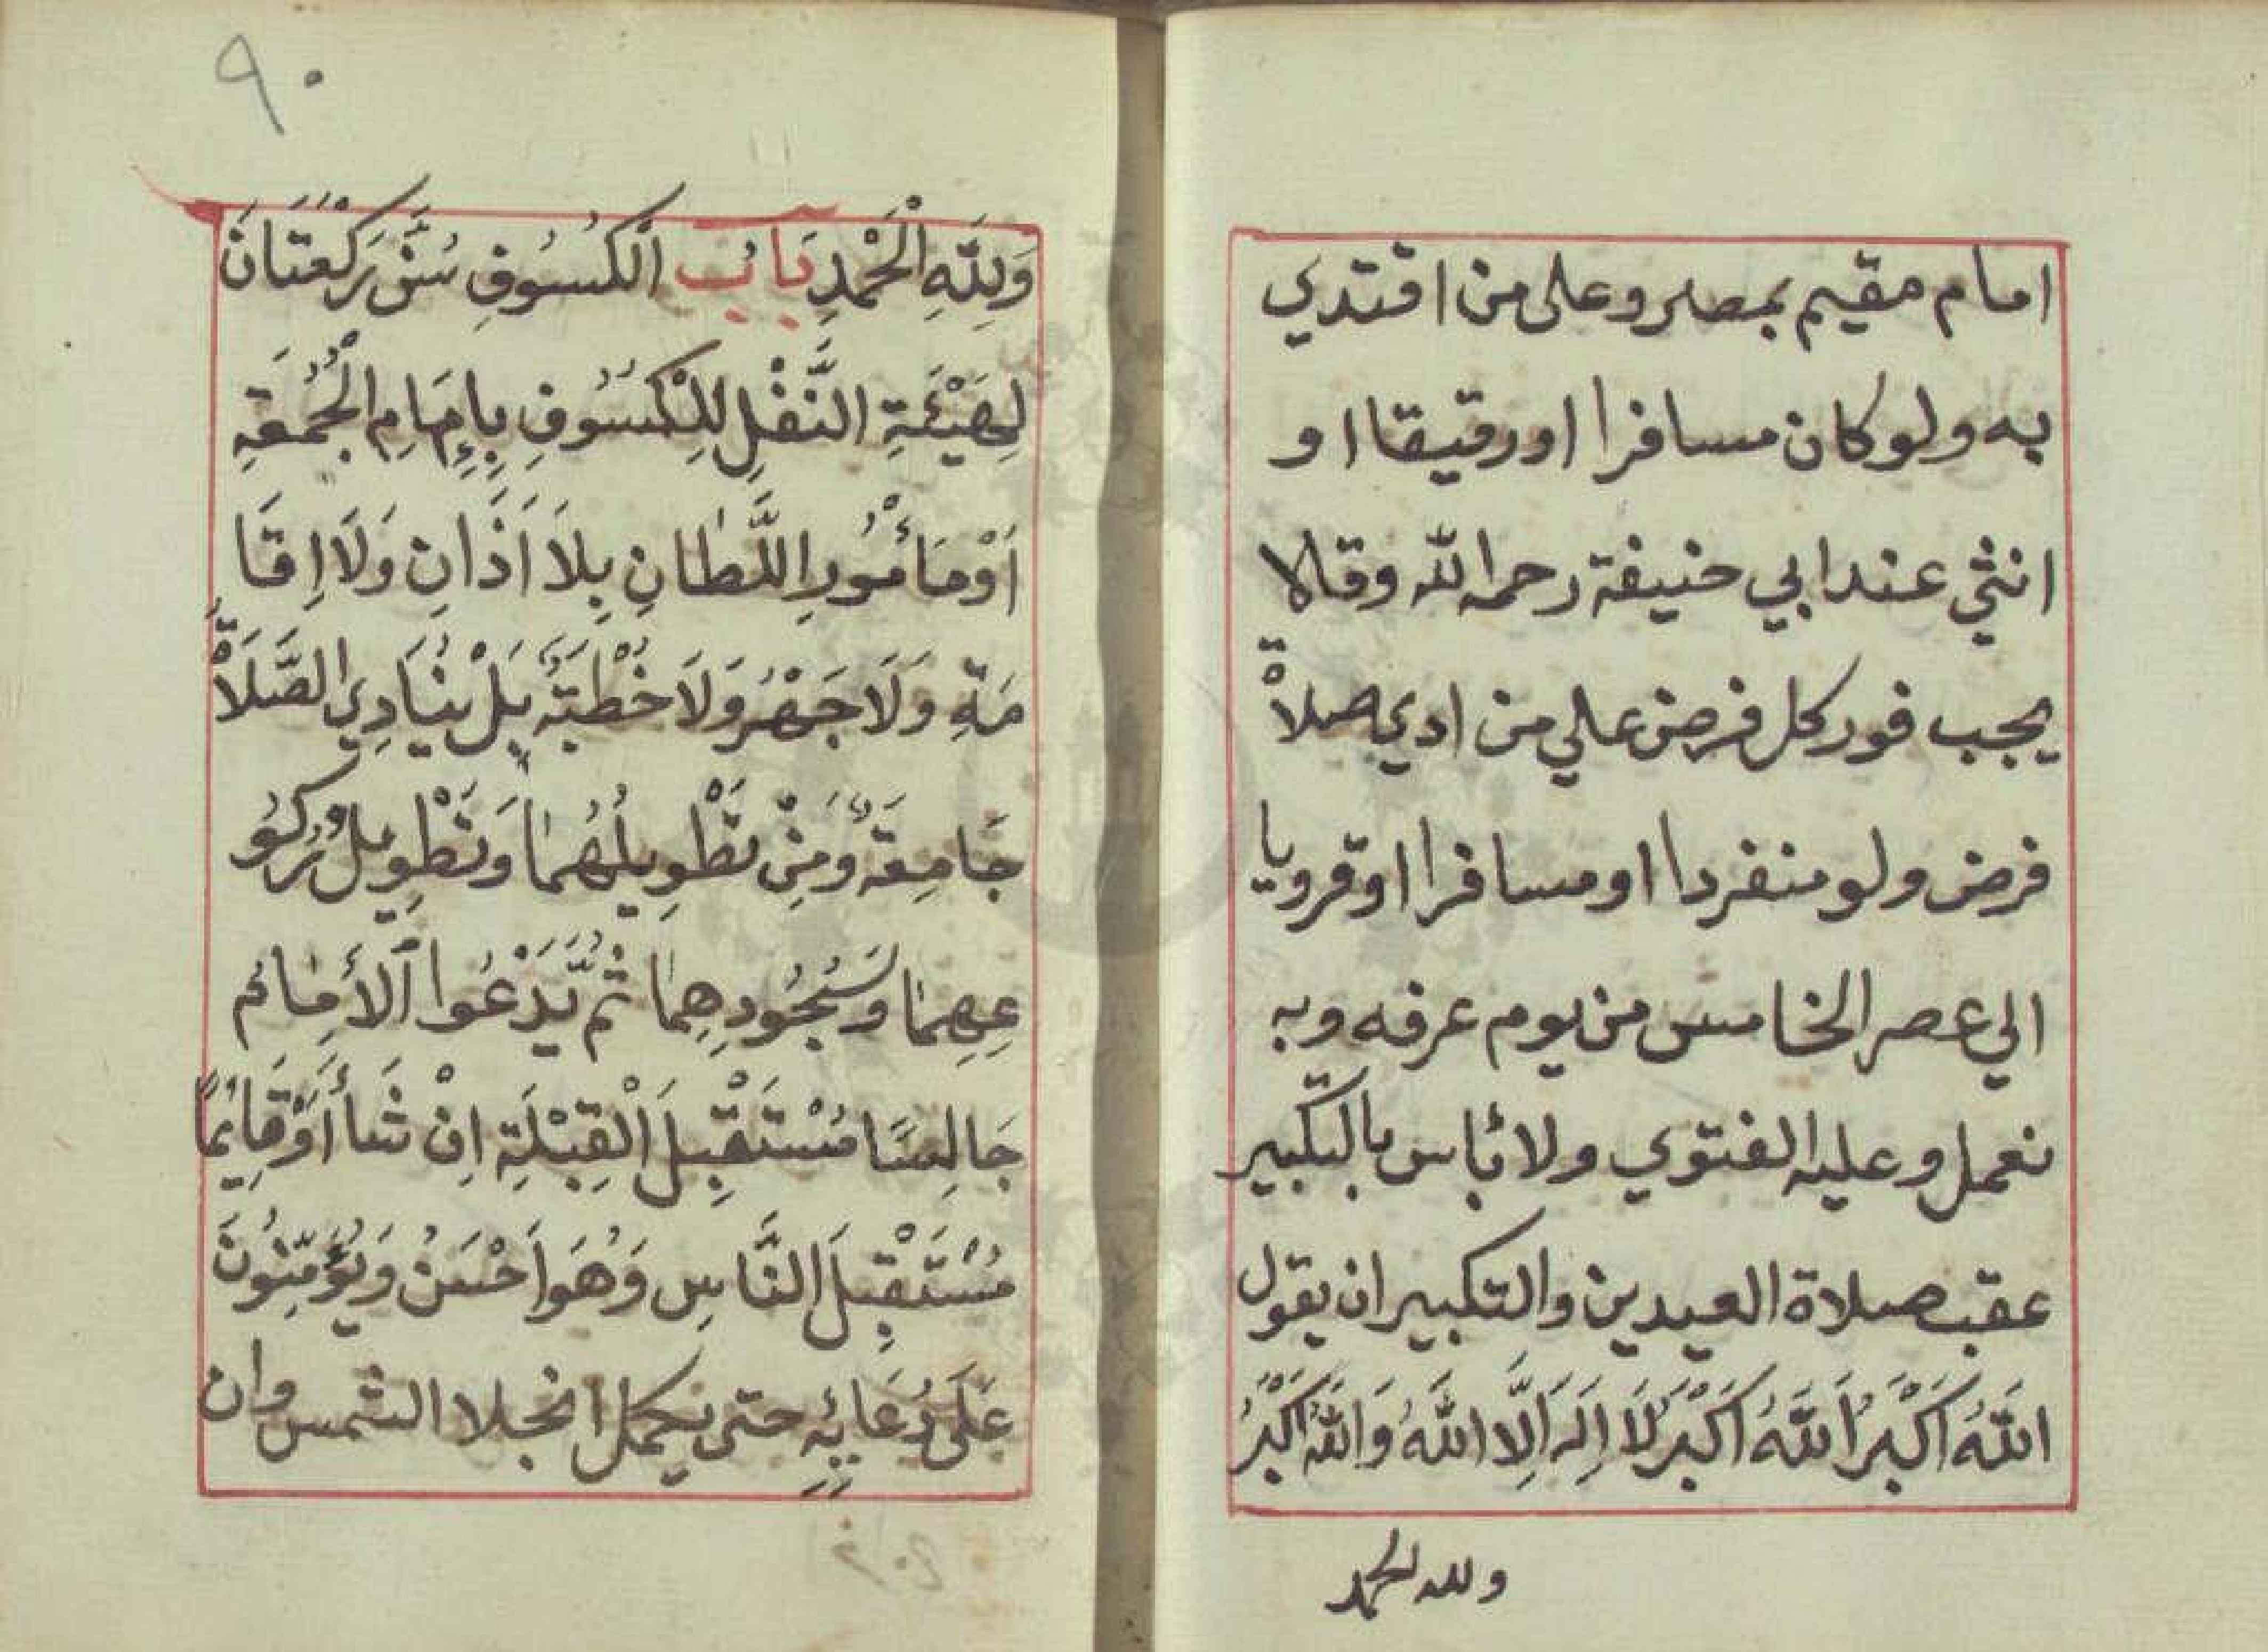 امام مقيم بمصر وعلى من اقتدي
به ولو كان مسافرا او رقيقا او
انثي عند ابي حنيفة رحمه الله وقالا
يجب فور كل فرض علي من ادي صلاةْ
فرض ولو منفردا او مسافرا اوقرويا
الي عصر الخامس من يوم عرفه وبه
نعمل وعليه الفتوي ولا بأس بالتكبير
عقب صلاة العيدين والتكبير ان يقول
اللهُ اَكْبَرُ اَللهُ اَكْبَرُ لَا اِلَهَ اِلَّا اللهُ وَاللهُ اَكْبَرُ
ولله الحمد
٩٠
وَلِلّهِ الْحَمْدِ بَابُ الْكُسُوفِ سُنَّ رَكْعَتَانَ
لِهَيْئَةِ النَّفْلِ لِلْكُسُوفِ بِإِمَامِ الْجُمُعَةِ
اَوْمَأْمُورِ اللَّطَانِ بِلَا اَذَانٍ وَلَا اِقَا
مَةِ وَلَا جَهْرُ وَلَا خُطْبَةٌ بَلْ يُنَادِي الصَّلَاةْ
جَامِعَةٌ وَمَنْ تَطْوِيلُهُمَا وَتَطْوِيلُ رُكُو
عِهِمَا وَسُجُودِهِمَا ثُمَّ يَدْعُوا اَلْأِمَامُ
جَالِسًا مُسْتَقْبِلَ الْقِبْلَةِ اِنْ شَأَ أَوْقَايِمًا
مُسْتَقْبِلَ النَّاسِ وَهُوَ اَحْسَنُ وَيُؤَمِّنُونَ
عَلَى دُعَائِهِ حتى يكمل انجلا الشمس وان